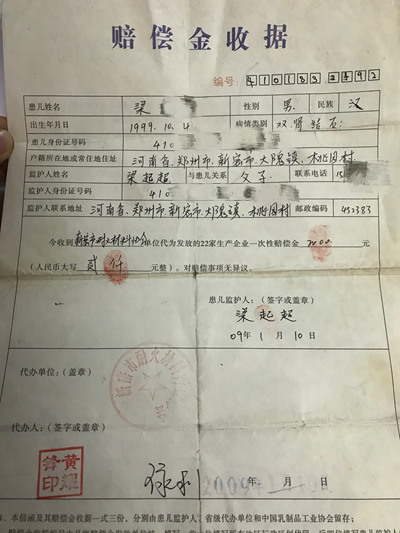 赔偿金收据
编号: 410183 2492
患儿姓名 梁 性别 男 民族 汉
出生年月日 1999.10.4 病情类别 双肾结石
患儿身份证号码 410
户籍所在地或常住地住址 河南省郑州市新密市大隗镇桃园村
监护人姓名 梁起超 与患儿关系 父子 联系电话 15
监护人身份证号码 410
监护人联系地址 河南省郑州市新密市大隗镇桃园村 邮政编码 452383
今收到 新密市耐火材料协会 单位代为发放的22家生产企业一次性赔偿金 2000 元
(人民币大写 贰仟 元整)。对赔偿事项无异议。
患儿监护人:(签字或盖章)
梁起超
09年1月10日
代办单位:(盖章)
代办人:(签字或盖章)
黄耀锋印
2009 年 月 日
1、本信函及其赔偿金收据一式三份,分别由患儿监护人、省级代办单位和中国乳制品工业协会留存;